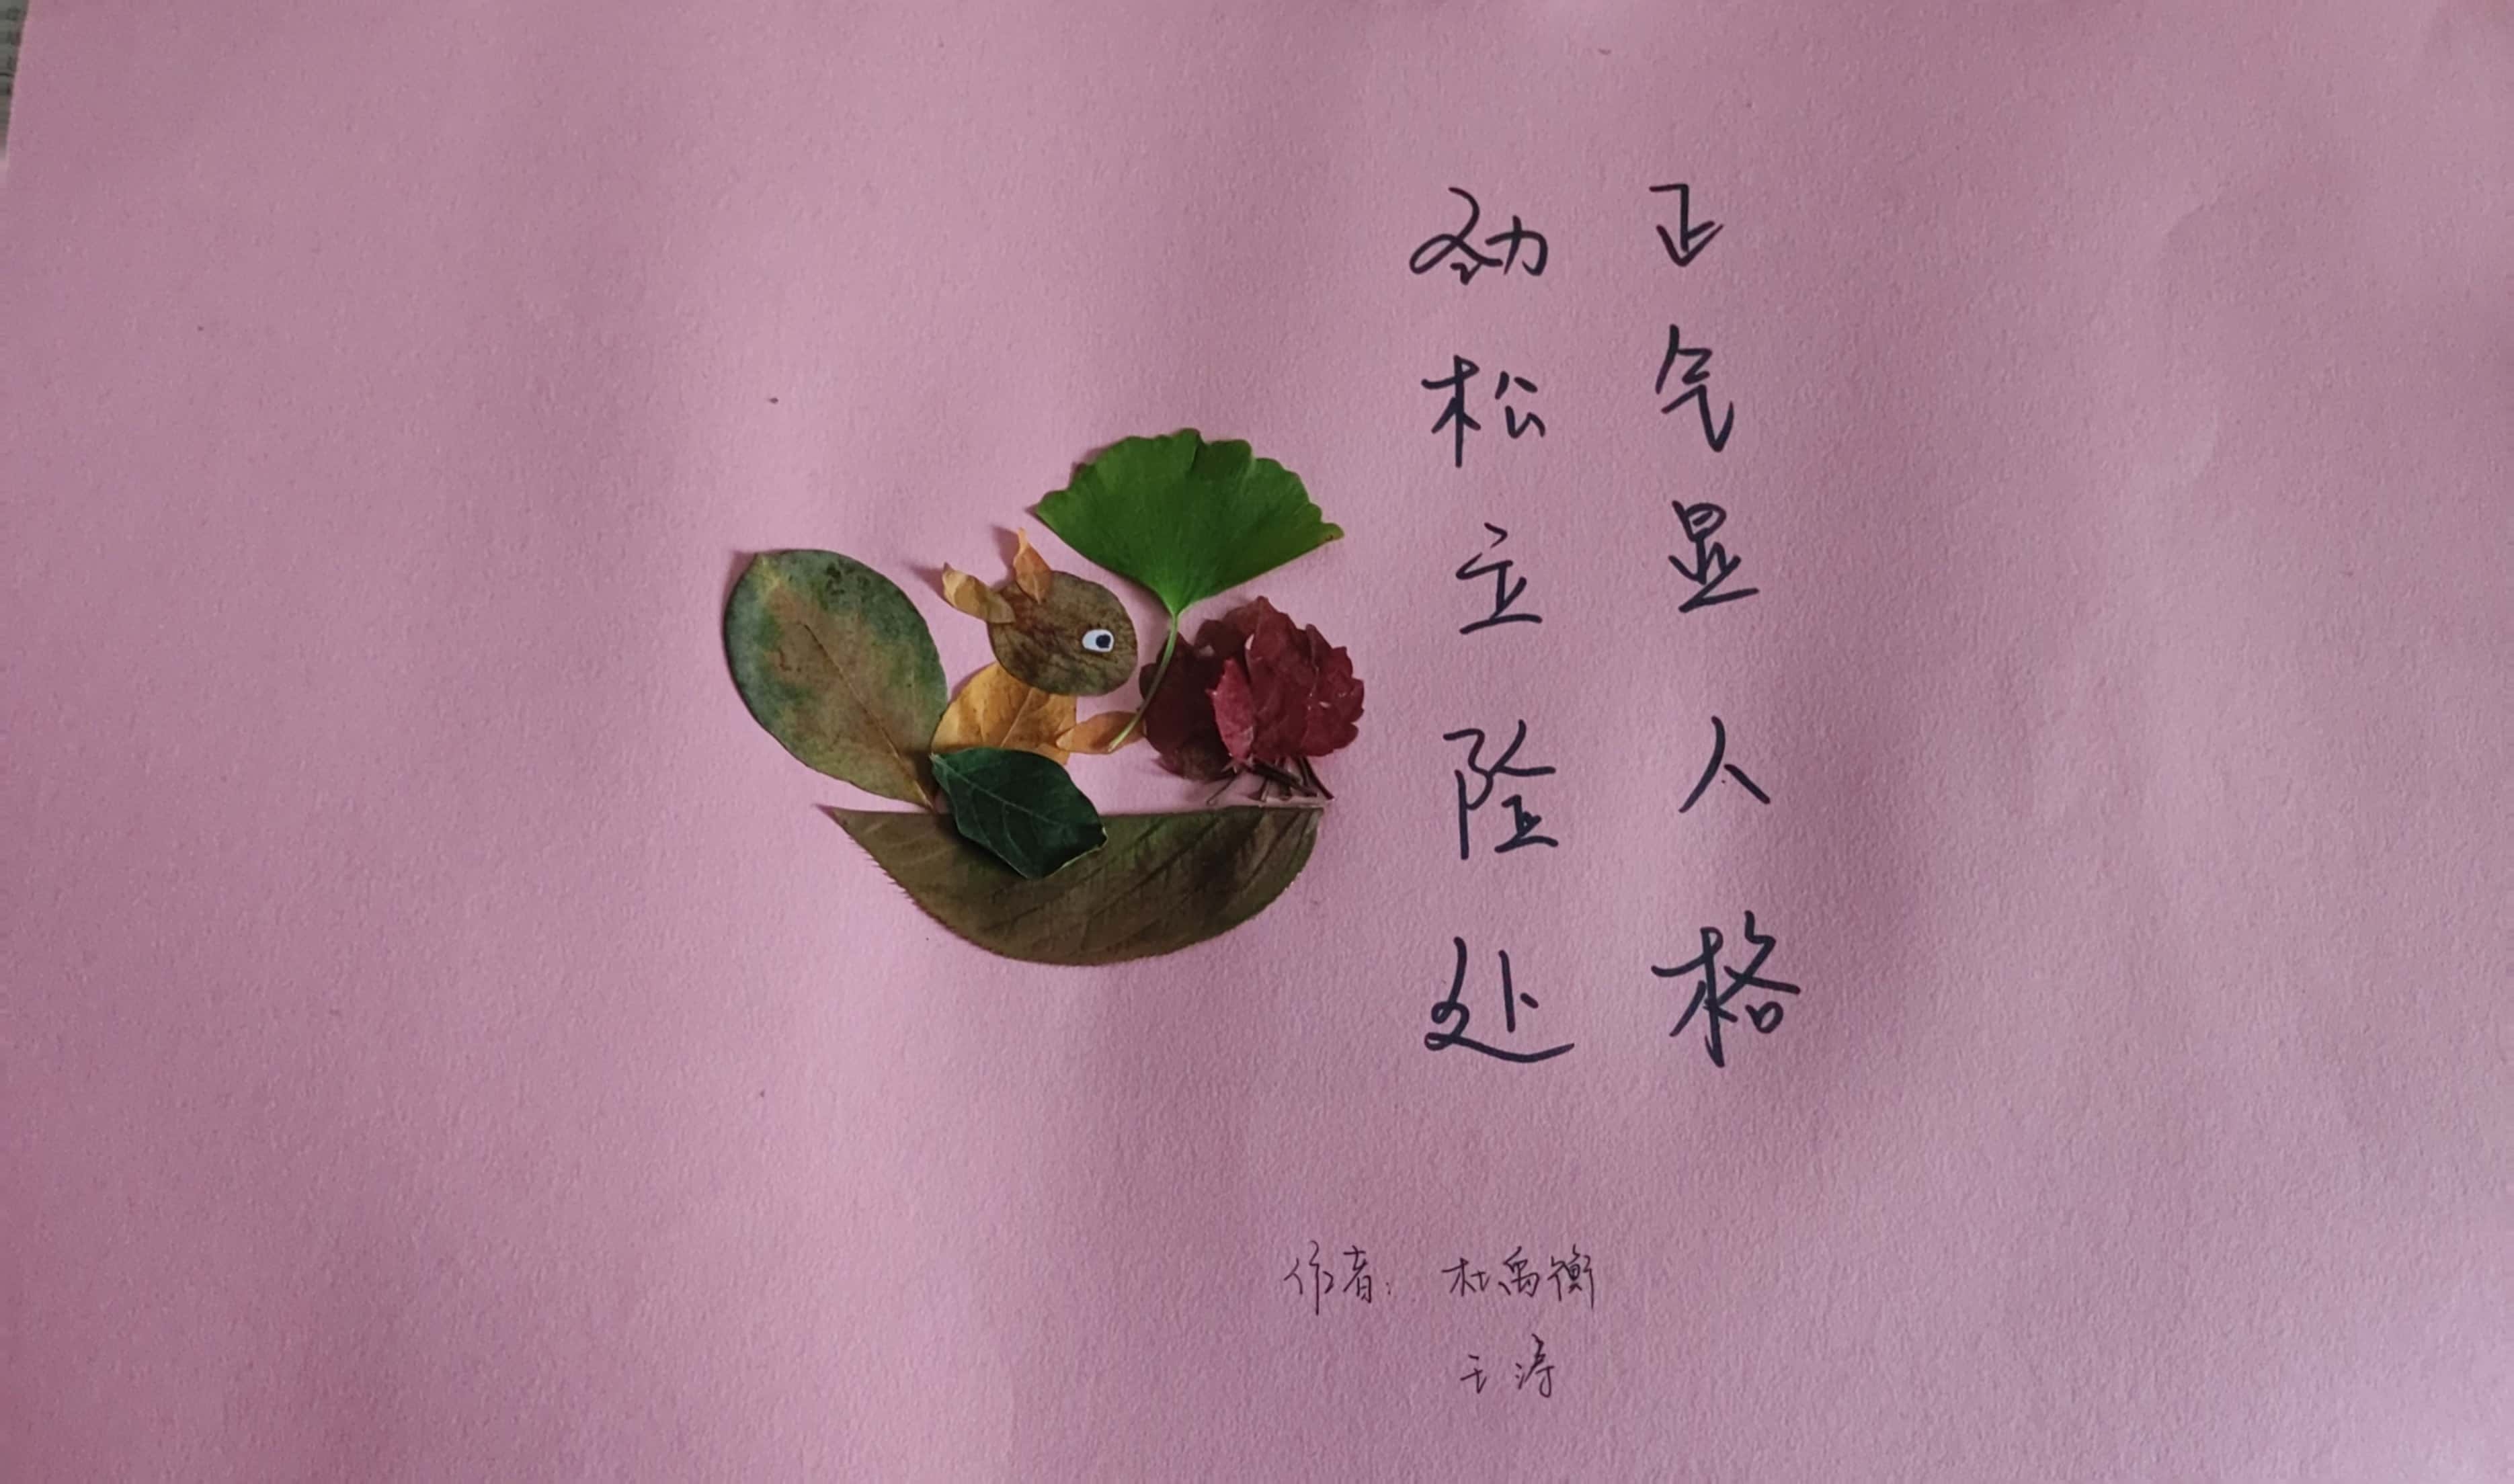 正气显人格
劲松立险处
作者：杜禹衡
王涛